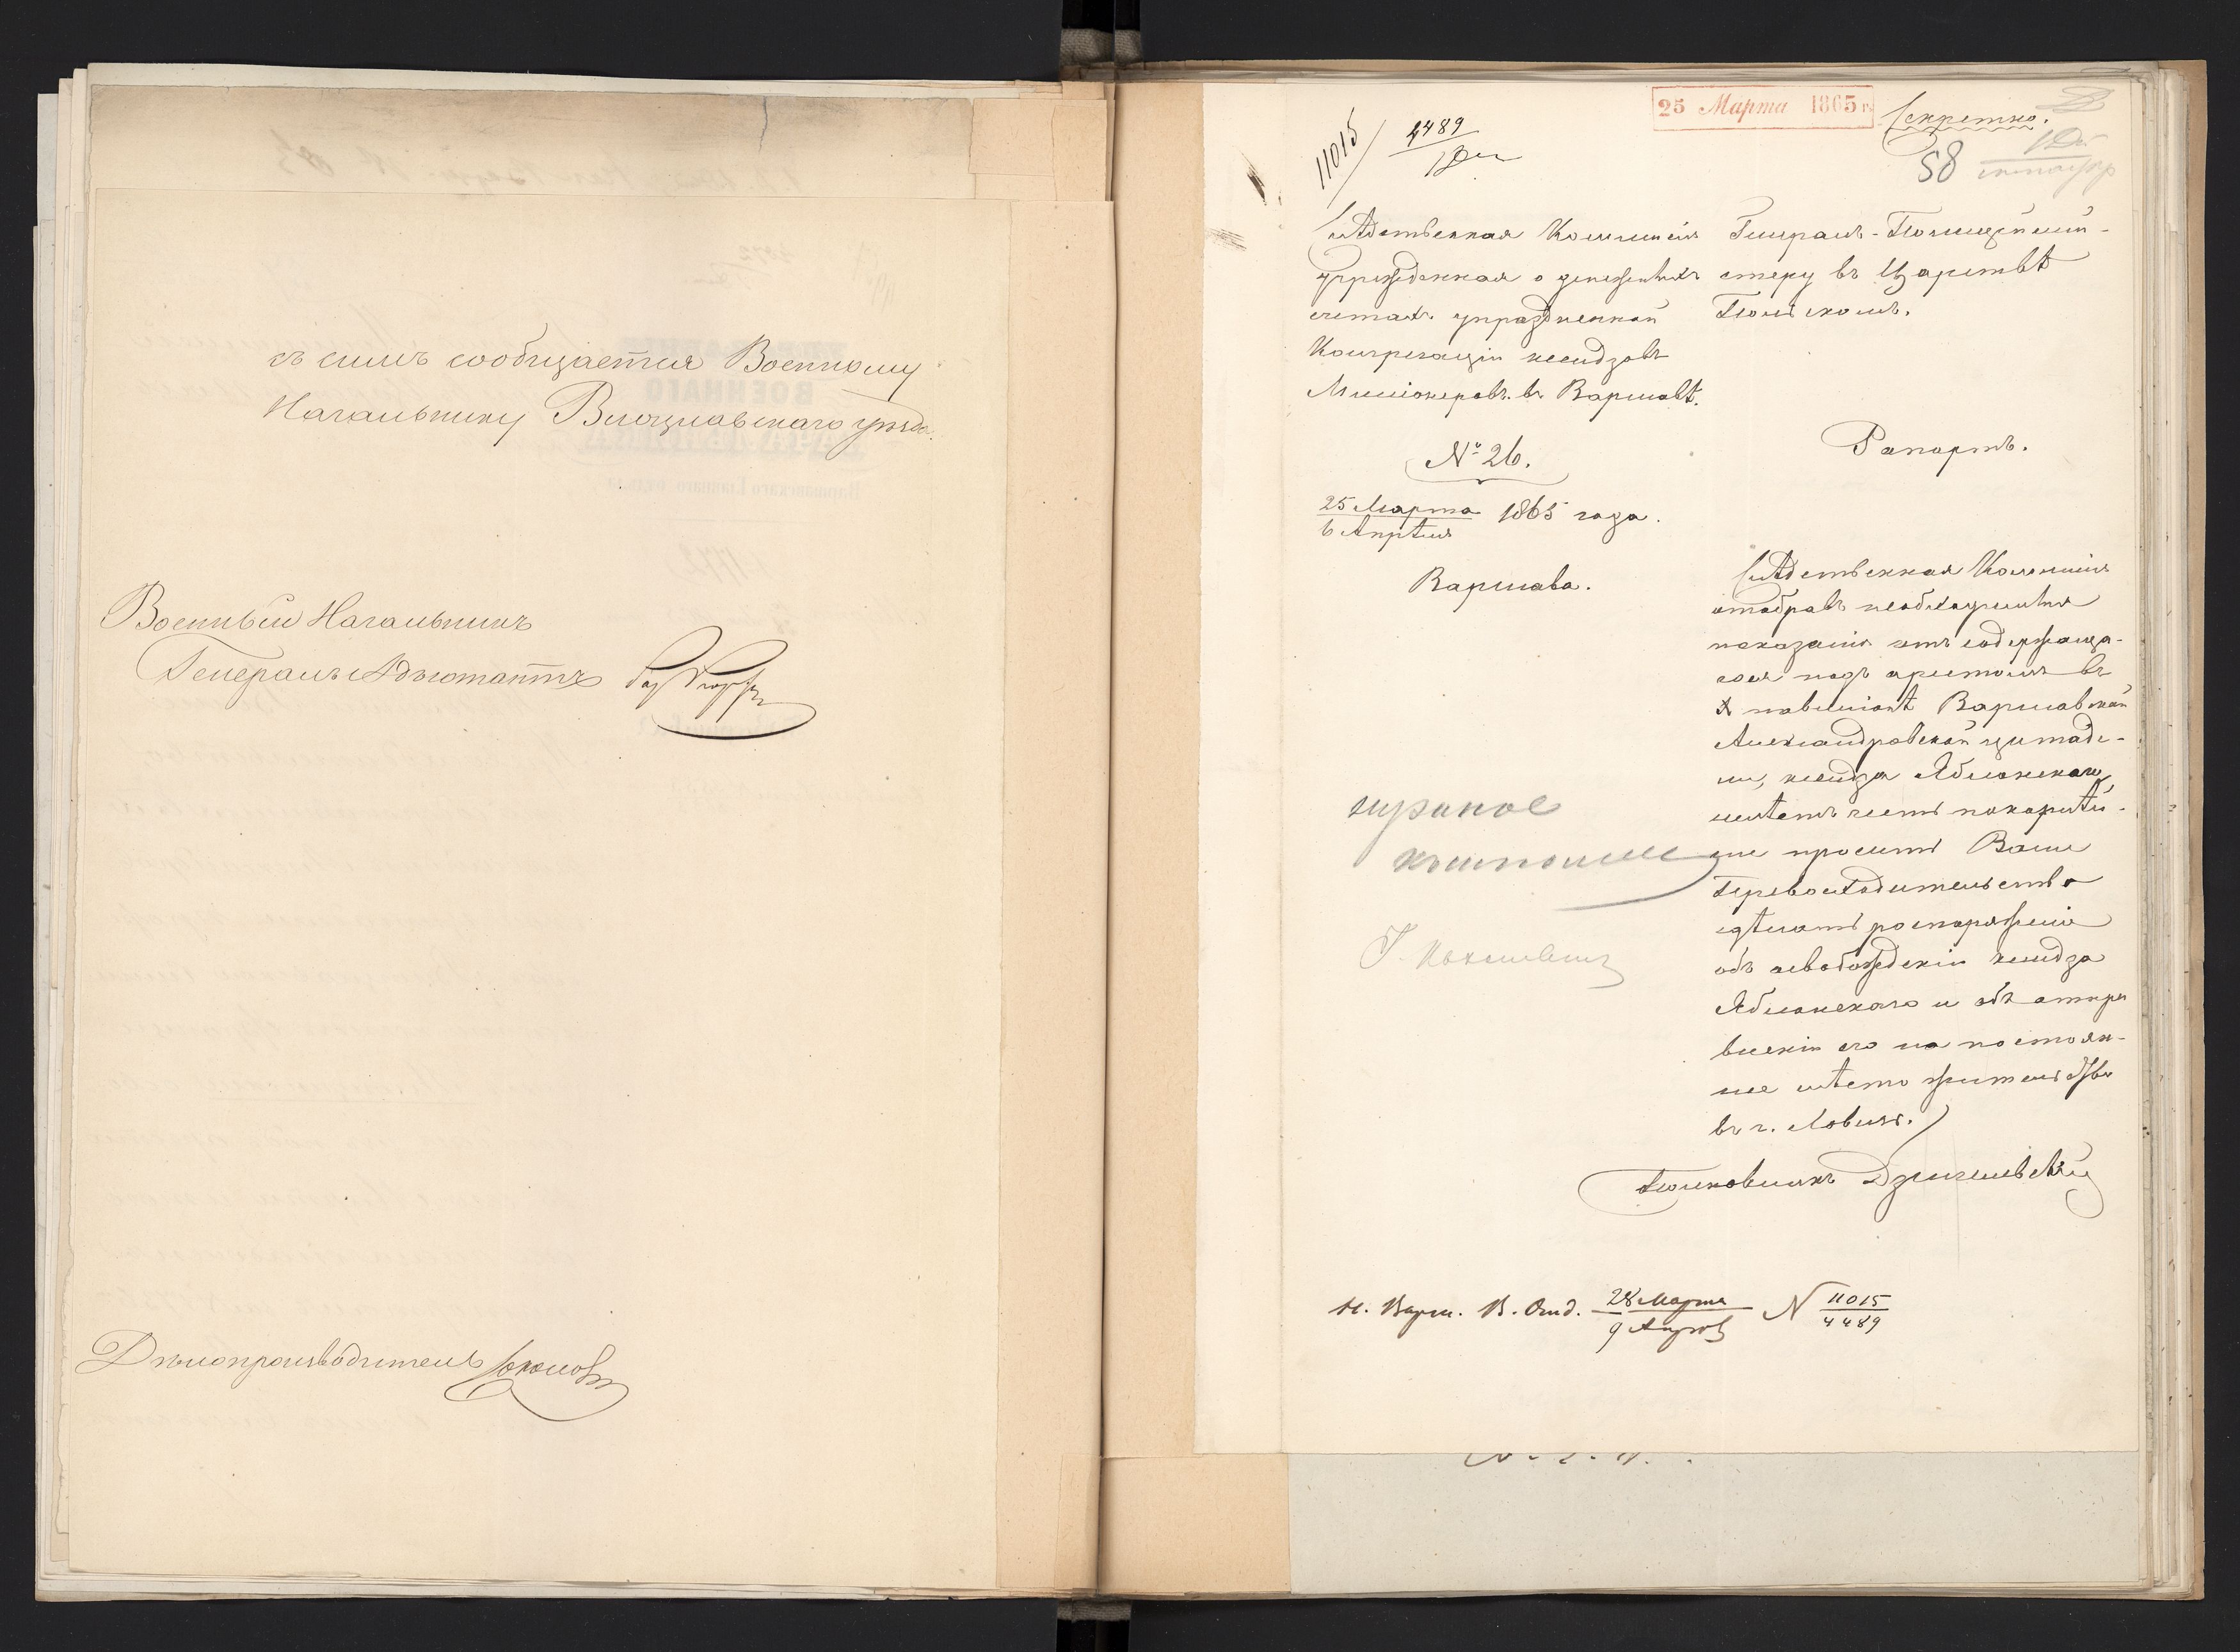 съ симъ сообщается Военному
Начальнику Влоцлавскаго уѣзда.
Военный Начальникъ
Генералъ Адъютантъ бар Корфъ
Дѣлопроизводитель Соколовъ
25 Марта 1865 г.
Секретно.
11015 / 4489
58
Слѣдственная Коммисія
учрежденная о денежныхъ
счетахъ упраздненной
Конгрегаціи ксендзовъ
Миссіонеровъ въ Варшавѣ.
№ 26.
25 Марта 1865 года.
6 Апрѣля
Варшава.
Генералъ-Полицеймей-
стеру въ Царствѣ
Польскомъ.
Рапортъ.
Слѣдственная Коммисія
отобравъ необходимыя
показанія отъ содержаща-
гося подъ арестомъ въ
X павиліонѣ Варшавской
Александровской цитаде-
ли, ксендза Яблонскаго,
имѣетъ честь покорнѣй-
ше просить Ваше
Превосходительство
сдѣлать распоряженіе
объ освобожденіи ксендза
Яблонскаго и объ отпра
вленіи его на постоян-
ное мѣсто жительства
въ г. Ловичъ.
Полковникъ
Н. Варш. В. Отд. 28 Марта N 11015
9 Апрѣля 4489